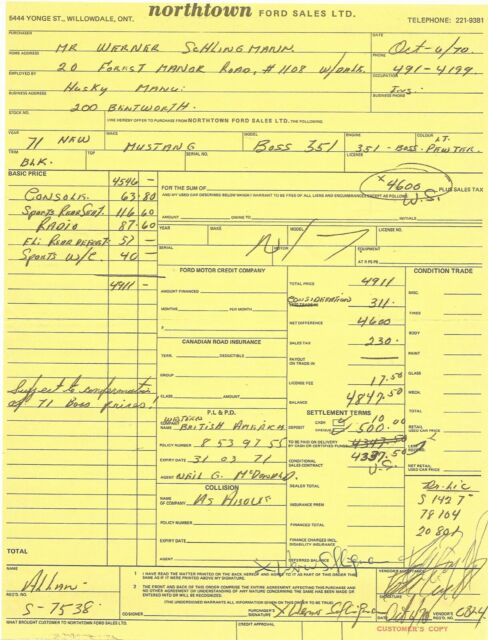 northtown FORD SALES LTD.
5444 YONGE ST., WILLOWDALE, ONT.
TELEPHONE: 221-9381
PURCHASER
MR WERNER SCHLINGMANN
DATE
Oct-6/70
HOME ADDRESS
20 FOREST MANOR ROAD, #1108 W/DALE
PHONE
491-4199
EMPLOYED BY
HUSKY MANU:
OCCUPATION
Ins.
BUSINESS ADDRESS
200 BENTWORTH.
BUSINESS PHONE
STOCK NO.
I/WE HEREBY OFFER TO PURCHASE FROM NORTHTOWN FORD SALES LTD. THE FOLLOWING
YEAR
71 NEW
MAKE
MUSTANG
MODEL
BOSS 351
ENGINE
351-BOSS-
COLOUR
LT. PEWTER
TRIM
BLK.
TOP
SERIAL NO.
LICENSE
BASIC PRICE
4546 -
CONSOLE 63.80
SPORTS REAR SEAT. 116.60
RADIO 87.60
ELE REAR DEFROST. 57 -
SPORTS W/C. 40 -
4911 -
FOR THE SUM OF
x4600 PLUS SALES TAX
U.S.
AND MY USED CAR DESCRIBED BELOW WHICH I WARRANT TO BE FREE OF ALL LIENS AND ENCUMBRANCES EXCEPT AS FOLLOWS
AMOUNT
OWING TO
INITIALS
YEAR
MAKE
MODEL
LICENSE NO.
SERIAL
MOTOR
EQUIPMENT
N/T
FORD MOTOR CREDIT COMPANY
AMOUNT FINANCED
MONTHS
PER MONTH
$
CANADIAN ROAD INSURANCE
TERM
DEDUCTIBLE
GROUP
CLASS
AMOUNT
P.L & P.D.
COMPANY
WESTERN BRITISH AMERICA
POLICY NUMBER
8 53 97 55
EXPIRY DATE
31 03 71
AGENT
NEIL G. McDONALD.
COLLISION
NAME OF COMPANY
AS ABOVE
POLICY NUMBER
EXPIRY DATE
AGENT
TOTAL PRICE 4911
CONSIDERATION 311.
NET DIFFERENCE 4600
SALES TAX 230.
PAYOUT ON TRADE IN
LICENSE FEE 17.50
BALANCE 4847.50
SETTLEMENT TERMS
DEPOSIT
CASH 10.00
CHEQUE 500.00
TO BE PAID ON DELIVERY BY CASH OR CERTIFIED FUNDS
4347.50
CONDITIONAL SALES CONTRACT
4337.50
U.S.
DEALER TOTAL
INSURANCE PREM
FINANCED TOTAL
FINANCE CHARGES INCL. DISABILITY INSURANCE
DEFERRED BALANCE
CONDITION TRADE
MISC.
TIRES
BODY
PAINT
GLASS
MECH.
TOTAL
RETAIL USED CAR PRICE
LESS
NET RETAIL USED CAR PRICE
Dr. Lic
S 1427
78104
Subject to confirmation
of 71 Boss prices!
TOTAL
1 I HAVE READ THE MATTER PRINTED ON THE BACK HEREOF AND AGREE TO IT AS PART OF THIS ORDER THE SAME AS IF IT WERE PRINTED ABOVE MY SIGNATURE.
2 THE FRONT AND BACK OF THIS ORDER COMPRISE THE ENTIRE AGREEMENT AFFECTING THIS PURCHASE AND NO OTHER AGREEMENT OR UNDERSTANDING OF ANY NATURE CONCERNING THE SAME HAS BEEN MADE OR ENTERED INTO OR WILL BE RECOGNIZED.
NAME
Allan
REG'D. NO.
S-7538.
COSIGNER
PURCHASER'S SIGNATURE
VENDOR'S ACCEPTANCE
SIGNATURE
VENDOR'S REG'D. NO.
WHAT BROUGHT CUSTOMER TO NORTHTOWN FORD SALES LTD.
CREDIT APPROVAL
CUSTOMER'S COPY